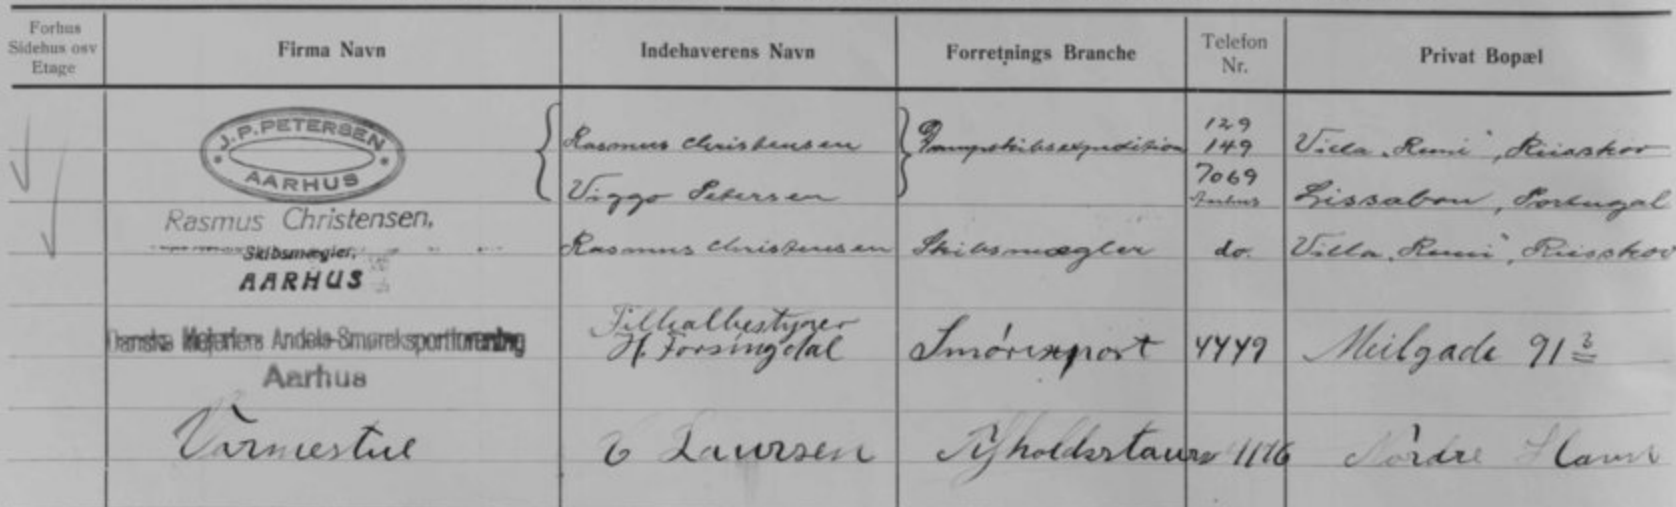 Forhus
Sidehus osv
Etage
Firma Navn
Indehaverens Navn
Forretnings Branche
Telefon
Nr.
Privat Bopæl
J. P. PETERSEN
AARHUS
Rasmus Christensen
Viggo Petersen
Dampskibsexpedition
129
149
7069
Villa "Remi", Riisskov
Lissabon, Portugal
Rasmus Christensen,
Skibsmægler,
AARHUS
Rasmus Christensen
Skibsmægler
do.
Villa "Remi", Riisskov
Danske Mejeriers Andels-Smøreksportforening
Aarhus
Filialbestyrer
H. Forsingdal
Smørexport
4449
Meilgade 91 2
Varmestue
C Laursen
Afholdsstaur 1176
Nordre Havn